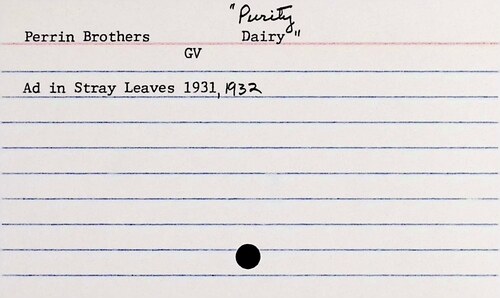 "Purity
Perrin Brothers Dairy"
GV
Ad in Stray Leaves 1931, 1932